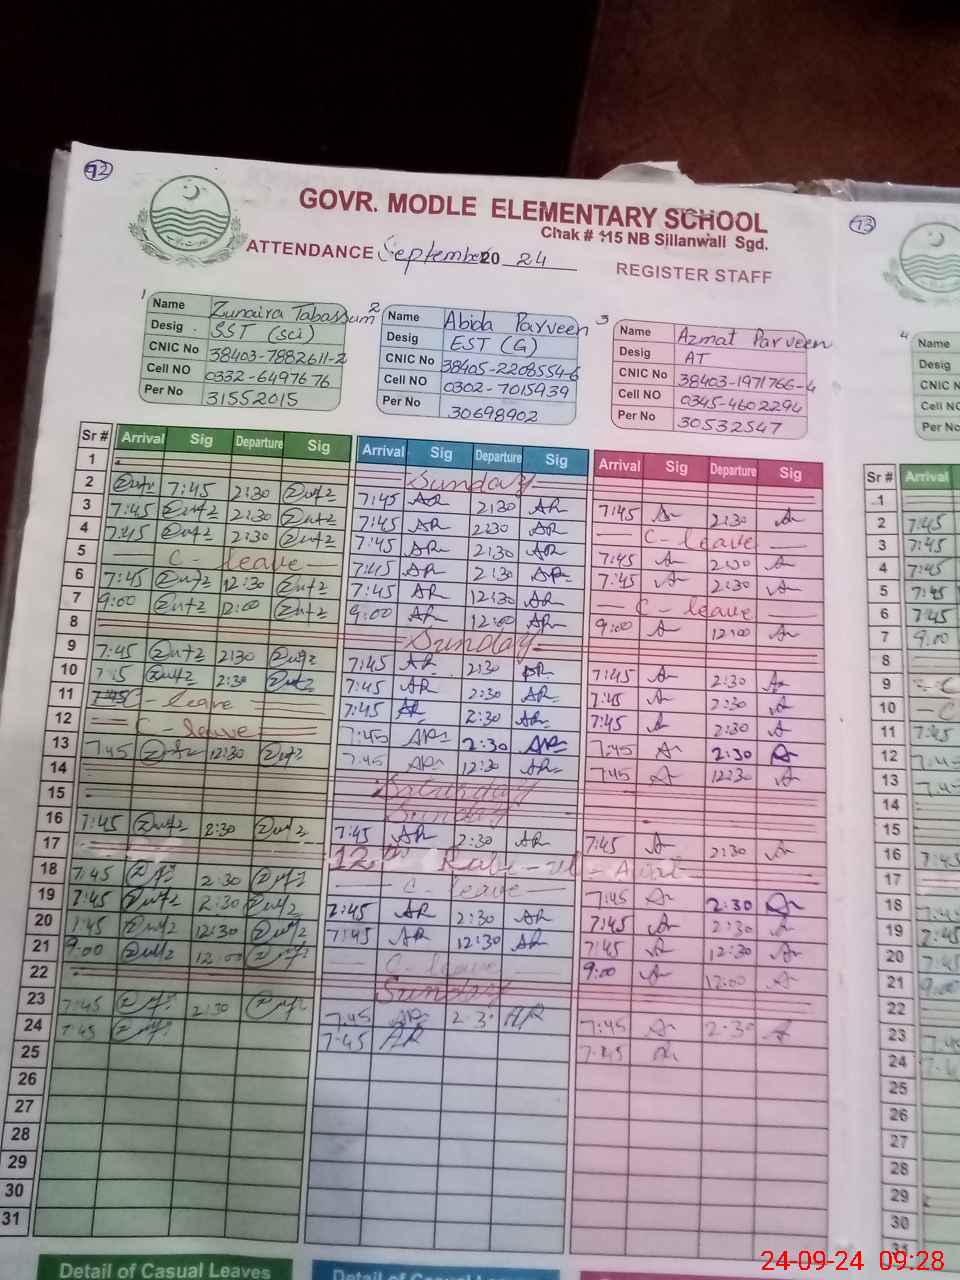 92
GOVR. MODLE ELEMENTARY SCHOOL
Chak # 115 NB Sillanwali Sgd.
93
ATTENDANCE September 20 24
REGISTER STAFF
1 Name Zunaira Tabassum
Desig SST (sci)
CNIC No 38403-7882611-2
Cell NO 0332-6497676
Per No 31552015
2 Name Abida Parveen
Desig EST (G)
CNIC No 38405-2208554-6
Cell NO 0302-7015939
Per No 30698902
3 Name Azmat Parveen
Desig AT
CNIC No 38403-1971766-4
Cell NO 0345-4602294
Per No 30532547
4 Name
Desig
CNIC N
Cell NO
Per No
Sr # Arrival Sig Departure Sig Arrival Sig Departure Sig Arrival Sig Departure Sig Sr # Arrival
1 Sunday 1
2 7:45 2:30 7:45 AR 2:30 AR 7:45 2:30 2 7:45
3 7:45 2:30 7:45 AR 2:30 AR C-leave 3 7:45
4 7:45 2:30 7:45 AR 2:30 AR 7:45 2:30 4 7:45
5 C-leave 7:45 AR 2:30 AR 7:45 2:30 5 7:45
6 7:45 12:30 7:45 AR 12:30 AR C-leave 6 7:45
7 9:00 12:00 9:00 AR 12:00 AR 9:00 12:00 7 9:00
8 Sunday 8
9 7:45 2:30 7:45 AR 2:30 AR 7:45 2:30 9 C
10 7:45 2:30 7:45 AR 2:30 AR 7:45 2:30 10 C
11 C-leave 7:45 AR 2:30 AR 7:45 2:30 11 7:45
12 C-leave 7:45 AR 2:30 AR 7:45 2:30 12 7:4
13 7:45 12:30 7:45 AR 12:30 AR 7:45 12:30 13 7:4
14 Saturday 14
15 Sunday 15
16 7:45 2:30 7:45 AR 2:30 AR 7:45 2:30 16 7:45
17 12th Rabi-ul-Awal 17
18 7:45 2:30 C-leave 7:45 2:30 18 7:4
19 7:45 2:30 7:45 AR 2:30 AR 7:45 2:30 19 7:45
20 7:45 12:30 7:45 AR 12:30 AR 7:45 12:30 20 7:45
21 9:00 12:00 C-leave 9:00 12:00 21 9:00
22 Sunday 22
23 7:45 2:30 7:45 AR 2:30 AR 7:45 2:30 23 7:4
24 7:45 7:45 AR 7:45 24
25 25
26 26
27 27
28 28
29 29
30 30
31 31
Detail of Casual Leaves
Detail of Casual Leaves
24-09-24 09:28